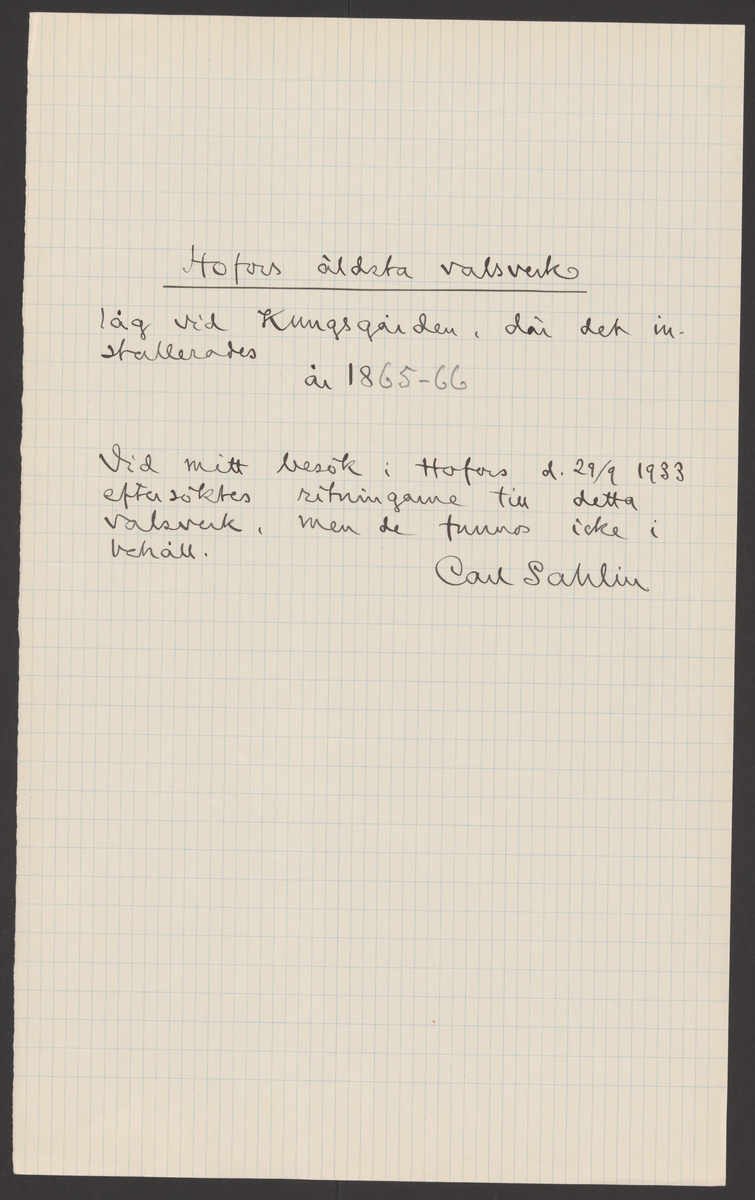 Hofors äldsta valsverk
låg vid Kungsgården, där det in-
stallerades
år 1865-66
Vid mitt besök i Hofors d. 29/9 1933
eftersöktes ritningarne till detta
valsverk, men de funnos icke i
behåll.
Carl Sahlin